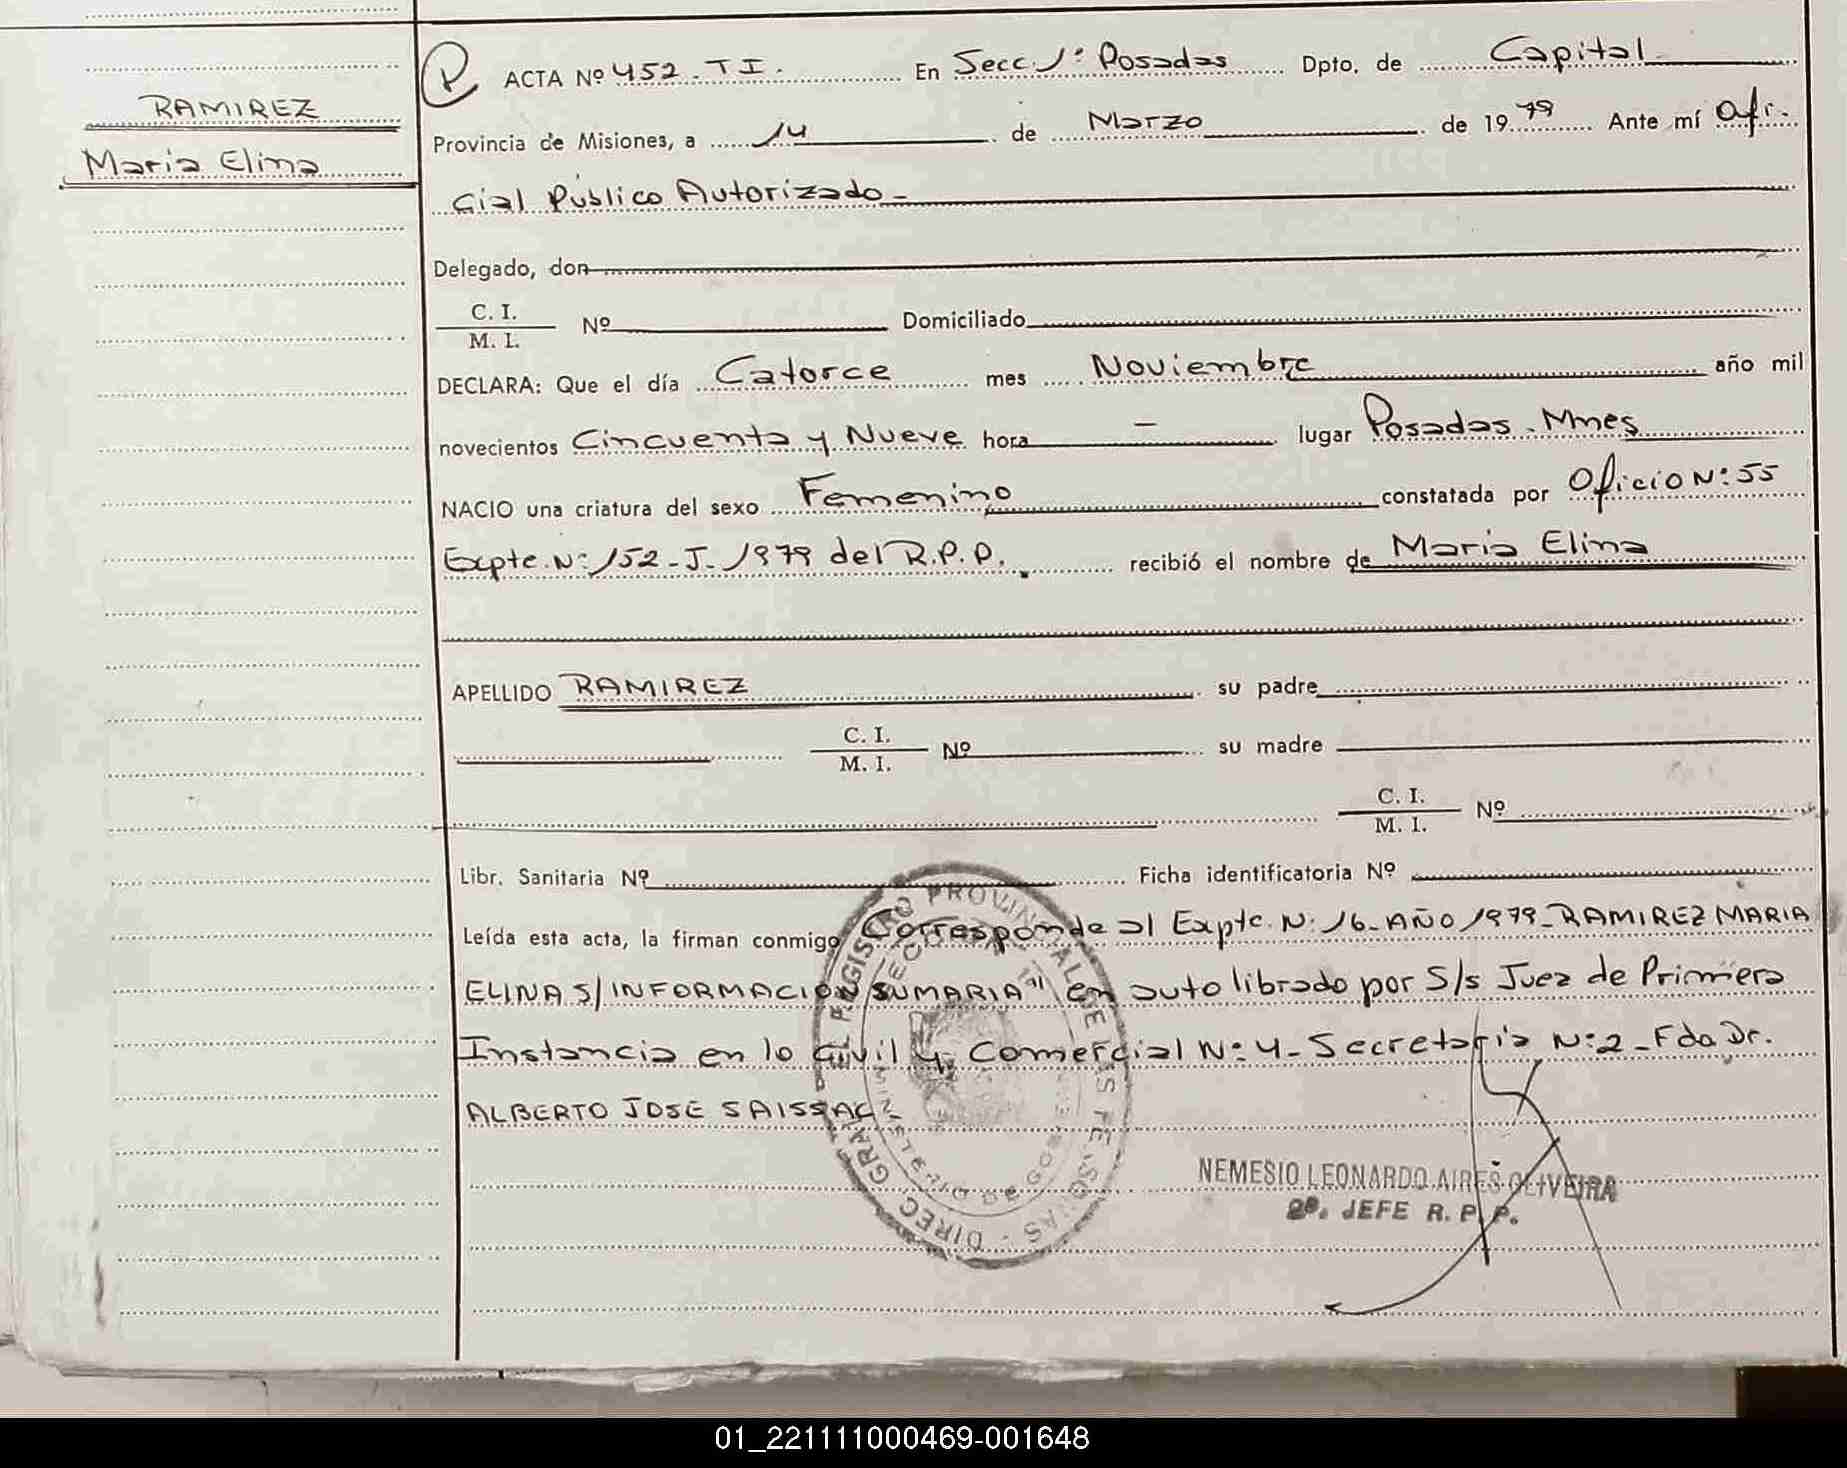 RAMIREZ
Maria Elina
P ACTA Nº 452. T I. En Secc. 1ª Posadas Dpto. de Capital
Provincia de Misiones, a 14 de Marzo de 1979 Ante mí Ofi-
cial Público Autorizado -
Delegado, don
C. I.
M. I.
Nº Domiciliado
DECLARA: Que el día Catorce mes Noviembre año mil
novecientos Cincuenta y Nueve hora - lugar Posadas. Mnes
NACIO una criatura del sexo Femenino constatada por Oficio Nº: 55
Expte. Nº: 152-J-1979 del R.P.P. recibió el nombre de Maria Elina
APELLIDO RAMIREZ su padre
C. I.
M. I.
Nº su madre
C. I.
M. I.
Nº
Libr. Sanitaria Nº Ficha identificatoria Nº
Leída esta acta, la firman conmigo Corresponde al Expte. N: 16- AÑO 1979- RAMIREZ MARIA
ELINA S/ INFORMACION SUMARIA" en auto librado por S/s Juez de Primera
Instancia en lo Civil y Comercial Nº: 4- Secretaria Nº: 2- Fdo Dr.
ALBERTO JOSE SAISSAC-
NEMESIO LEONARDO AIRES OLIVEIRA
2º. JEFE R. P. P.
01_221111000469-001648